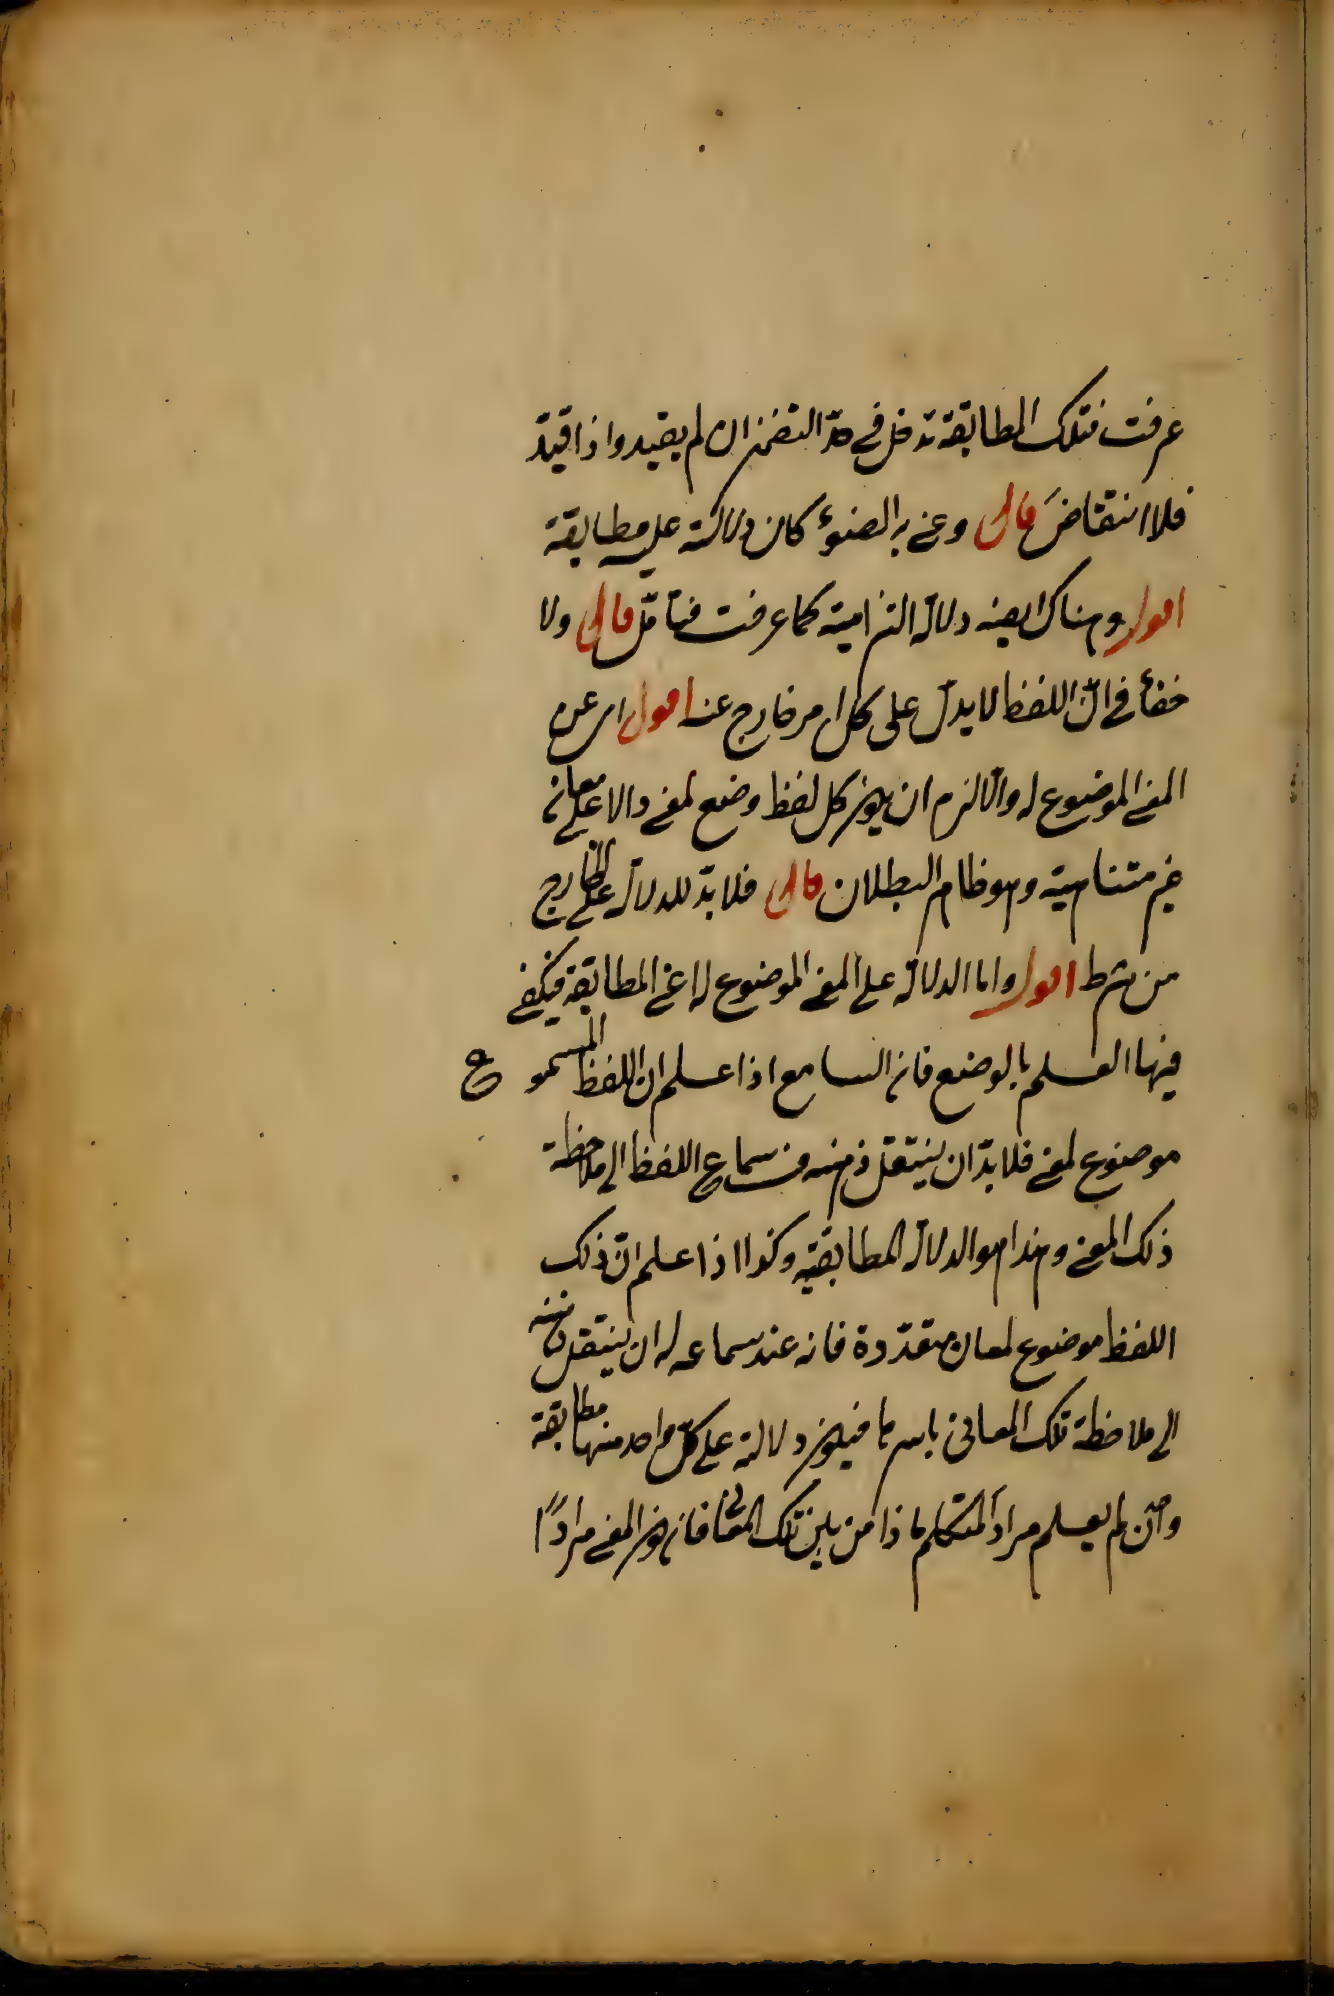 عرفت فتلك المطابقة تدخل في حدّ التضمن ان لم يقيد واذا قيّد
فلا انتقاض قال وعني به الضوء كان دلالته عليه مطابقة
اقول وهناك ايضه دلالة التزامية كما عرفت فتأمّل قال ولا
خفأ في انّ اللفظ لا يدلّ على كل امر خارج عنه اقول اى عن
المعنى الموضوع له والّا لزم ان يكون كل لفظ وضع لمعنى دالا على معان
غير متناهية وهو ظاهر البطلان قال فلا بدّ للدلالة على الخارج
من شرط اقول واما الدلالة على المعنى الموضوع له اعني المطابقة فيكفي
فيها العلم بالوضع فان السامع اذا علم ان اللفظ المسموع
موضوع لمعنى فلا بدّ ان ينتقل ذهنه من سماع اللفظ الى ملاحظة
ذلك المعنى وهذا هو الدلالة المطابقية وكذا اذا علم انّ ذلك
اللفظ موضوع لمعان متعدّدة فانه عند سماعه له ان ينتقل ذهنه
الى ملاحظة تلك المعاني باسرها فيكون دلالته على كلّ واحد منها مطابقة
وان لم يعلم مراد المتكلم ماذا من بين تلك المعاني فان كون المعنى مرادًا